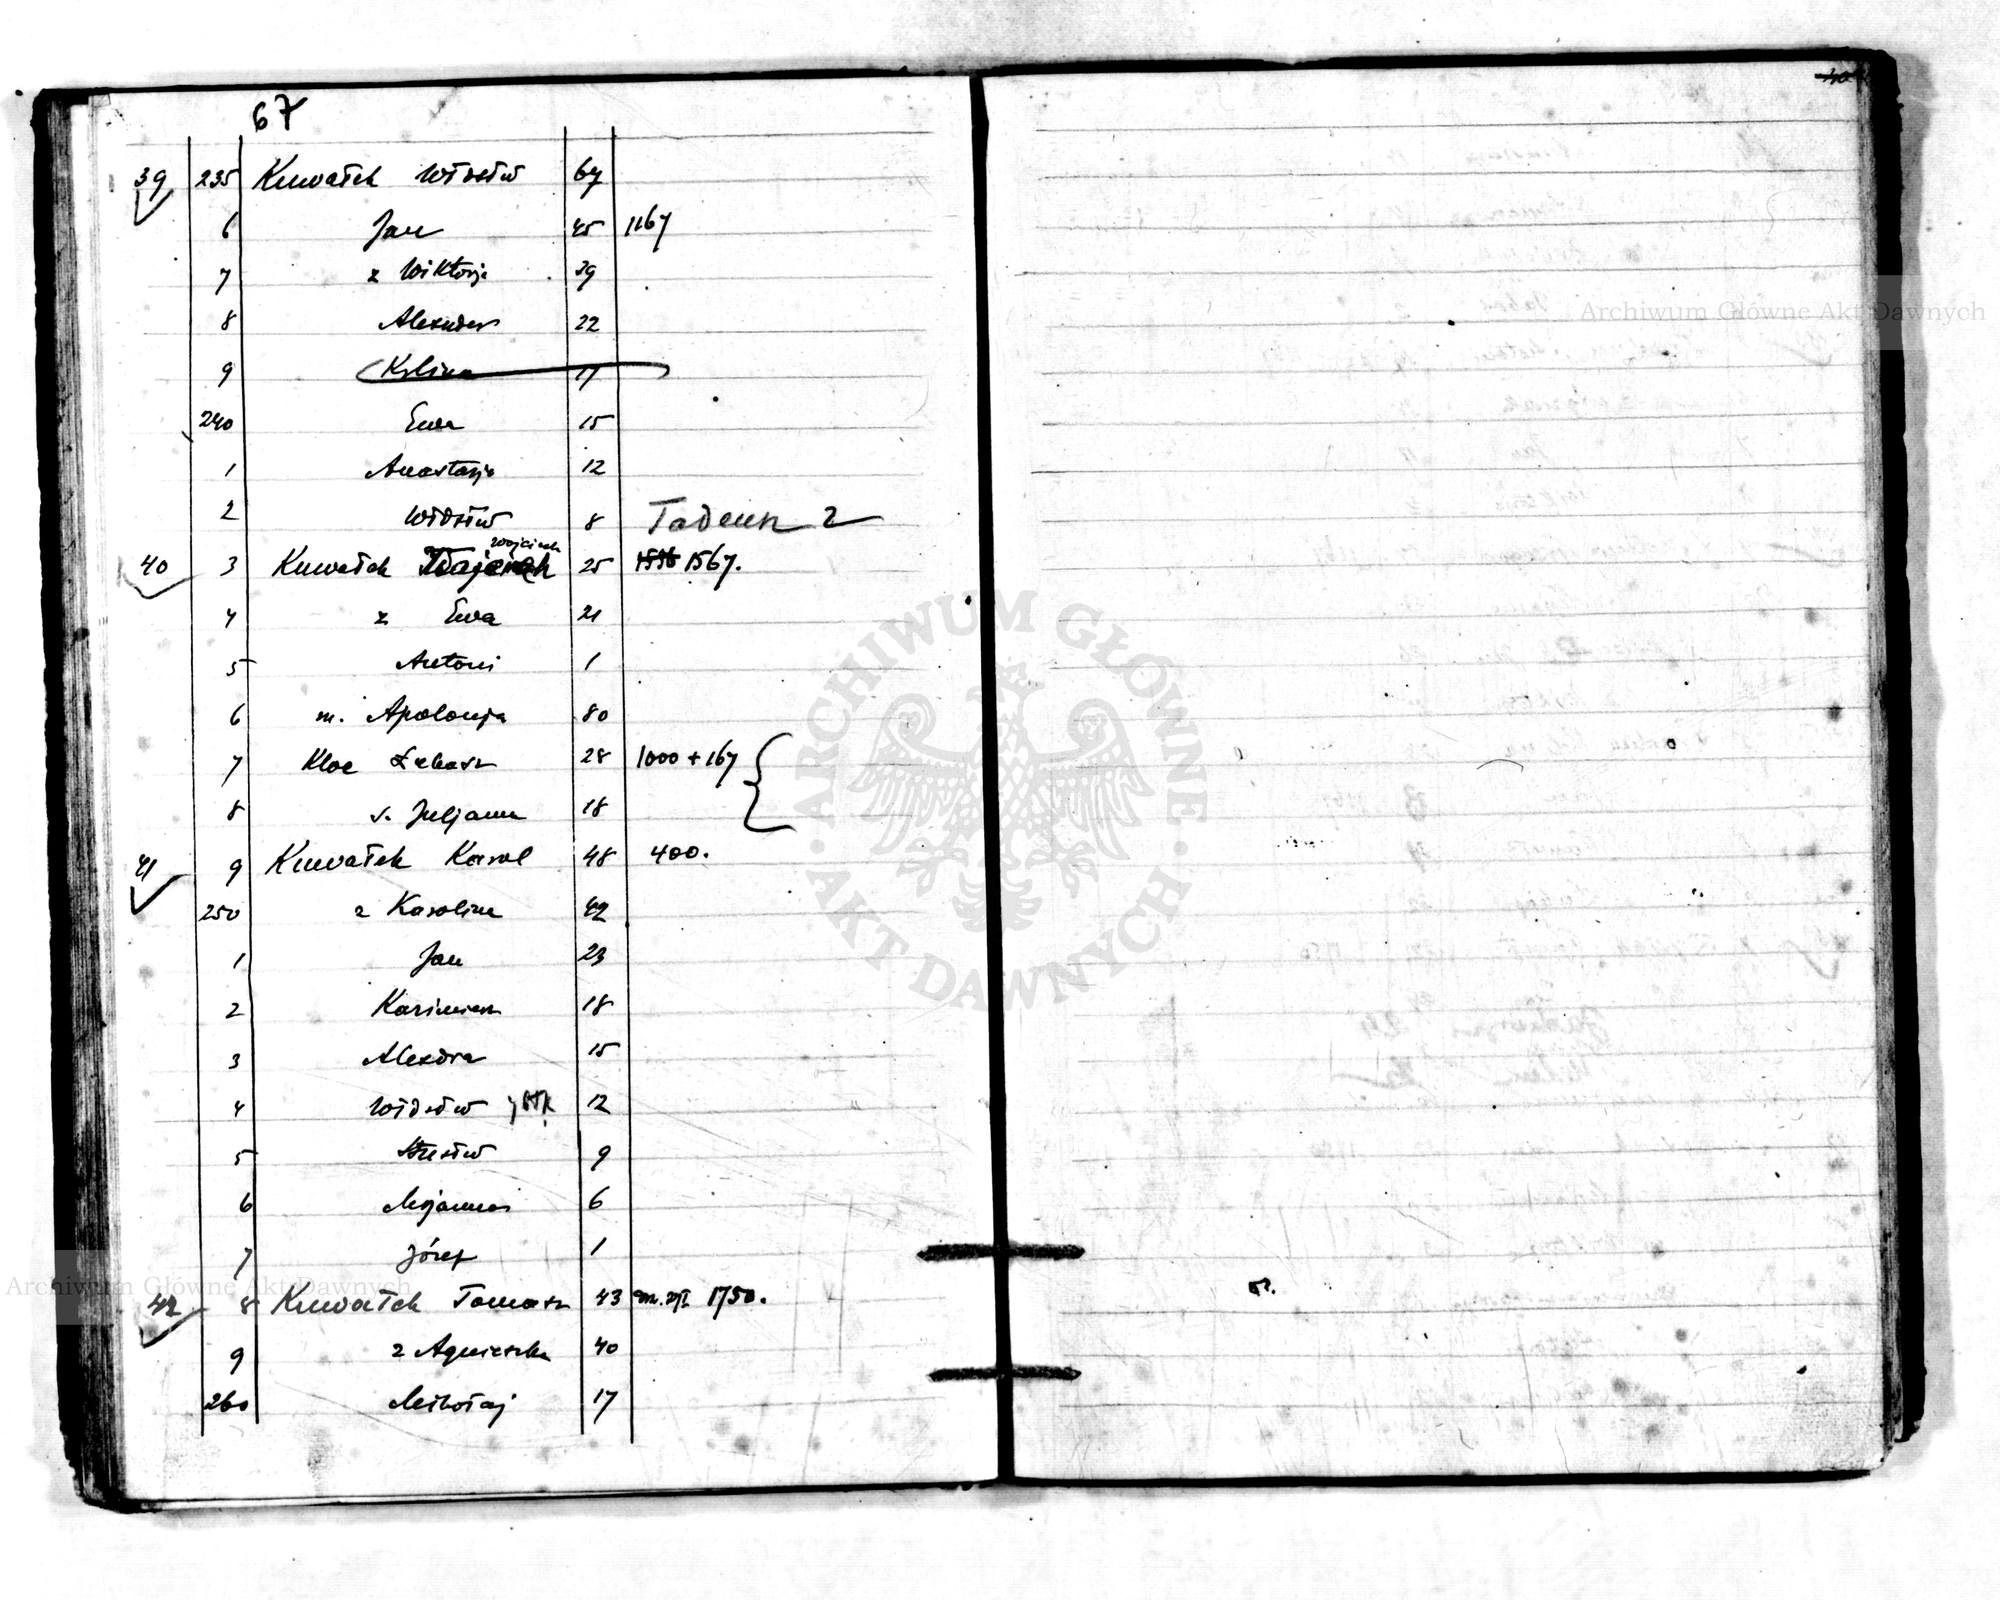 67
39 235 Kuwałek Włdsłw 67
6 Jan 45 1167
7 z Wiktorja 39
8 Alexnder 22
9 Krlina 17
240 Ewa 15
1 Anastazja 12
2 Włdsłw 8 Tadeusz 2
Wojciech
40 3 Kuwałek 25 1567.
4 z Ewa 21
5 Antoni 1
6 m. Apolonja 80
7 Kloc Łukasz 28 1000 + 167
8 s. Juljanna 18
41 9 Kuwałek Karol 48 400.
250 z Karolina 42
1 Jan 23
2 Kazimierz 18
3 Alexdra 15
4 Włdsłw 12
5 Stnsłw 9
6 Mrjanna 6
7 Józef 1
42 8 Kuwałek Tomasz 43 1750.
9 z Agnieszka 40
260 Mikołaj 17
40
ARCHIWUM GŁÓWNE AKT DAWNYCH
Archiwum Główne Akt Dawnych
Archiwum Główne Akt Dawnych